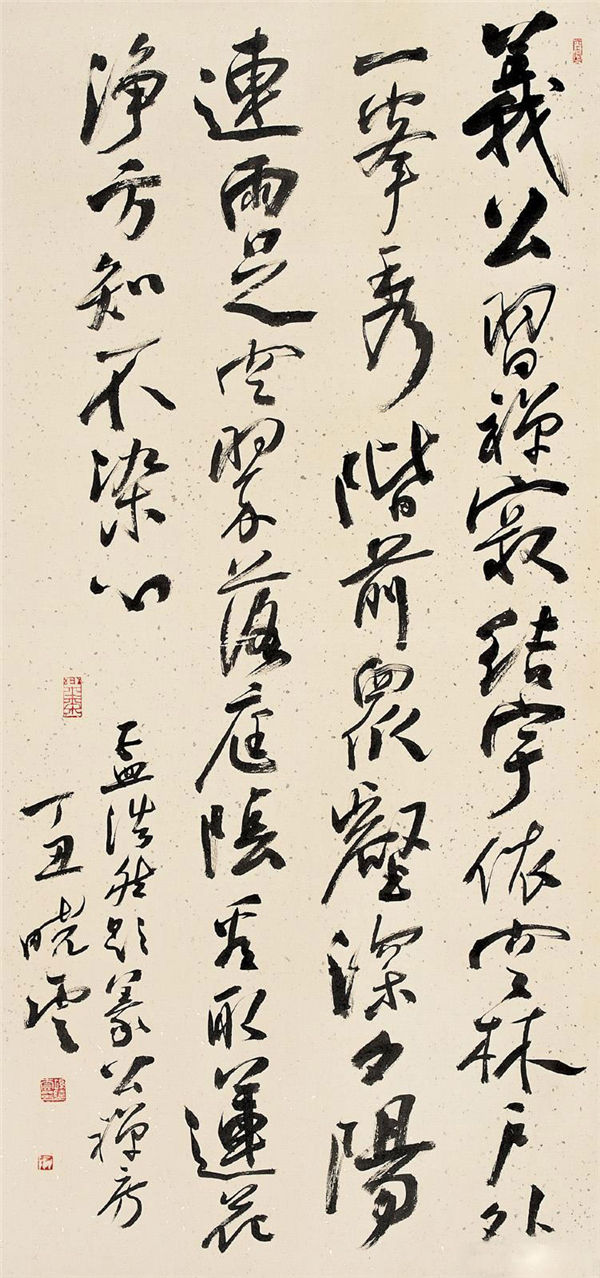 義公習禪寂結宇依空林户外
一峯秀階前眾壑深夕陽
連雨足空翠落庭陰看取蓮花
淨方知不染心
孟浩然題義公禪房
丁丑曉雲